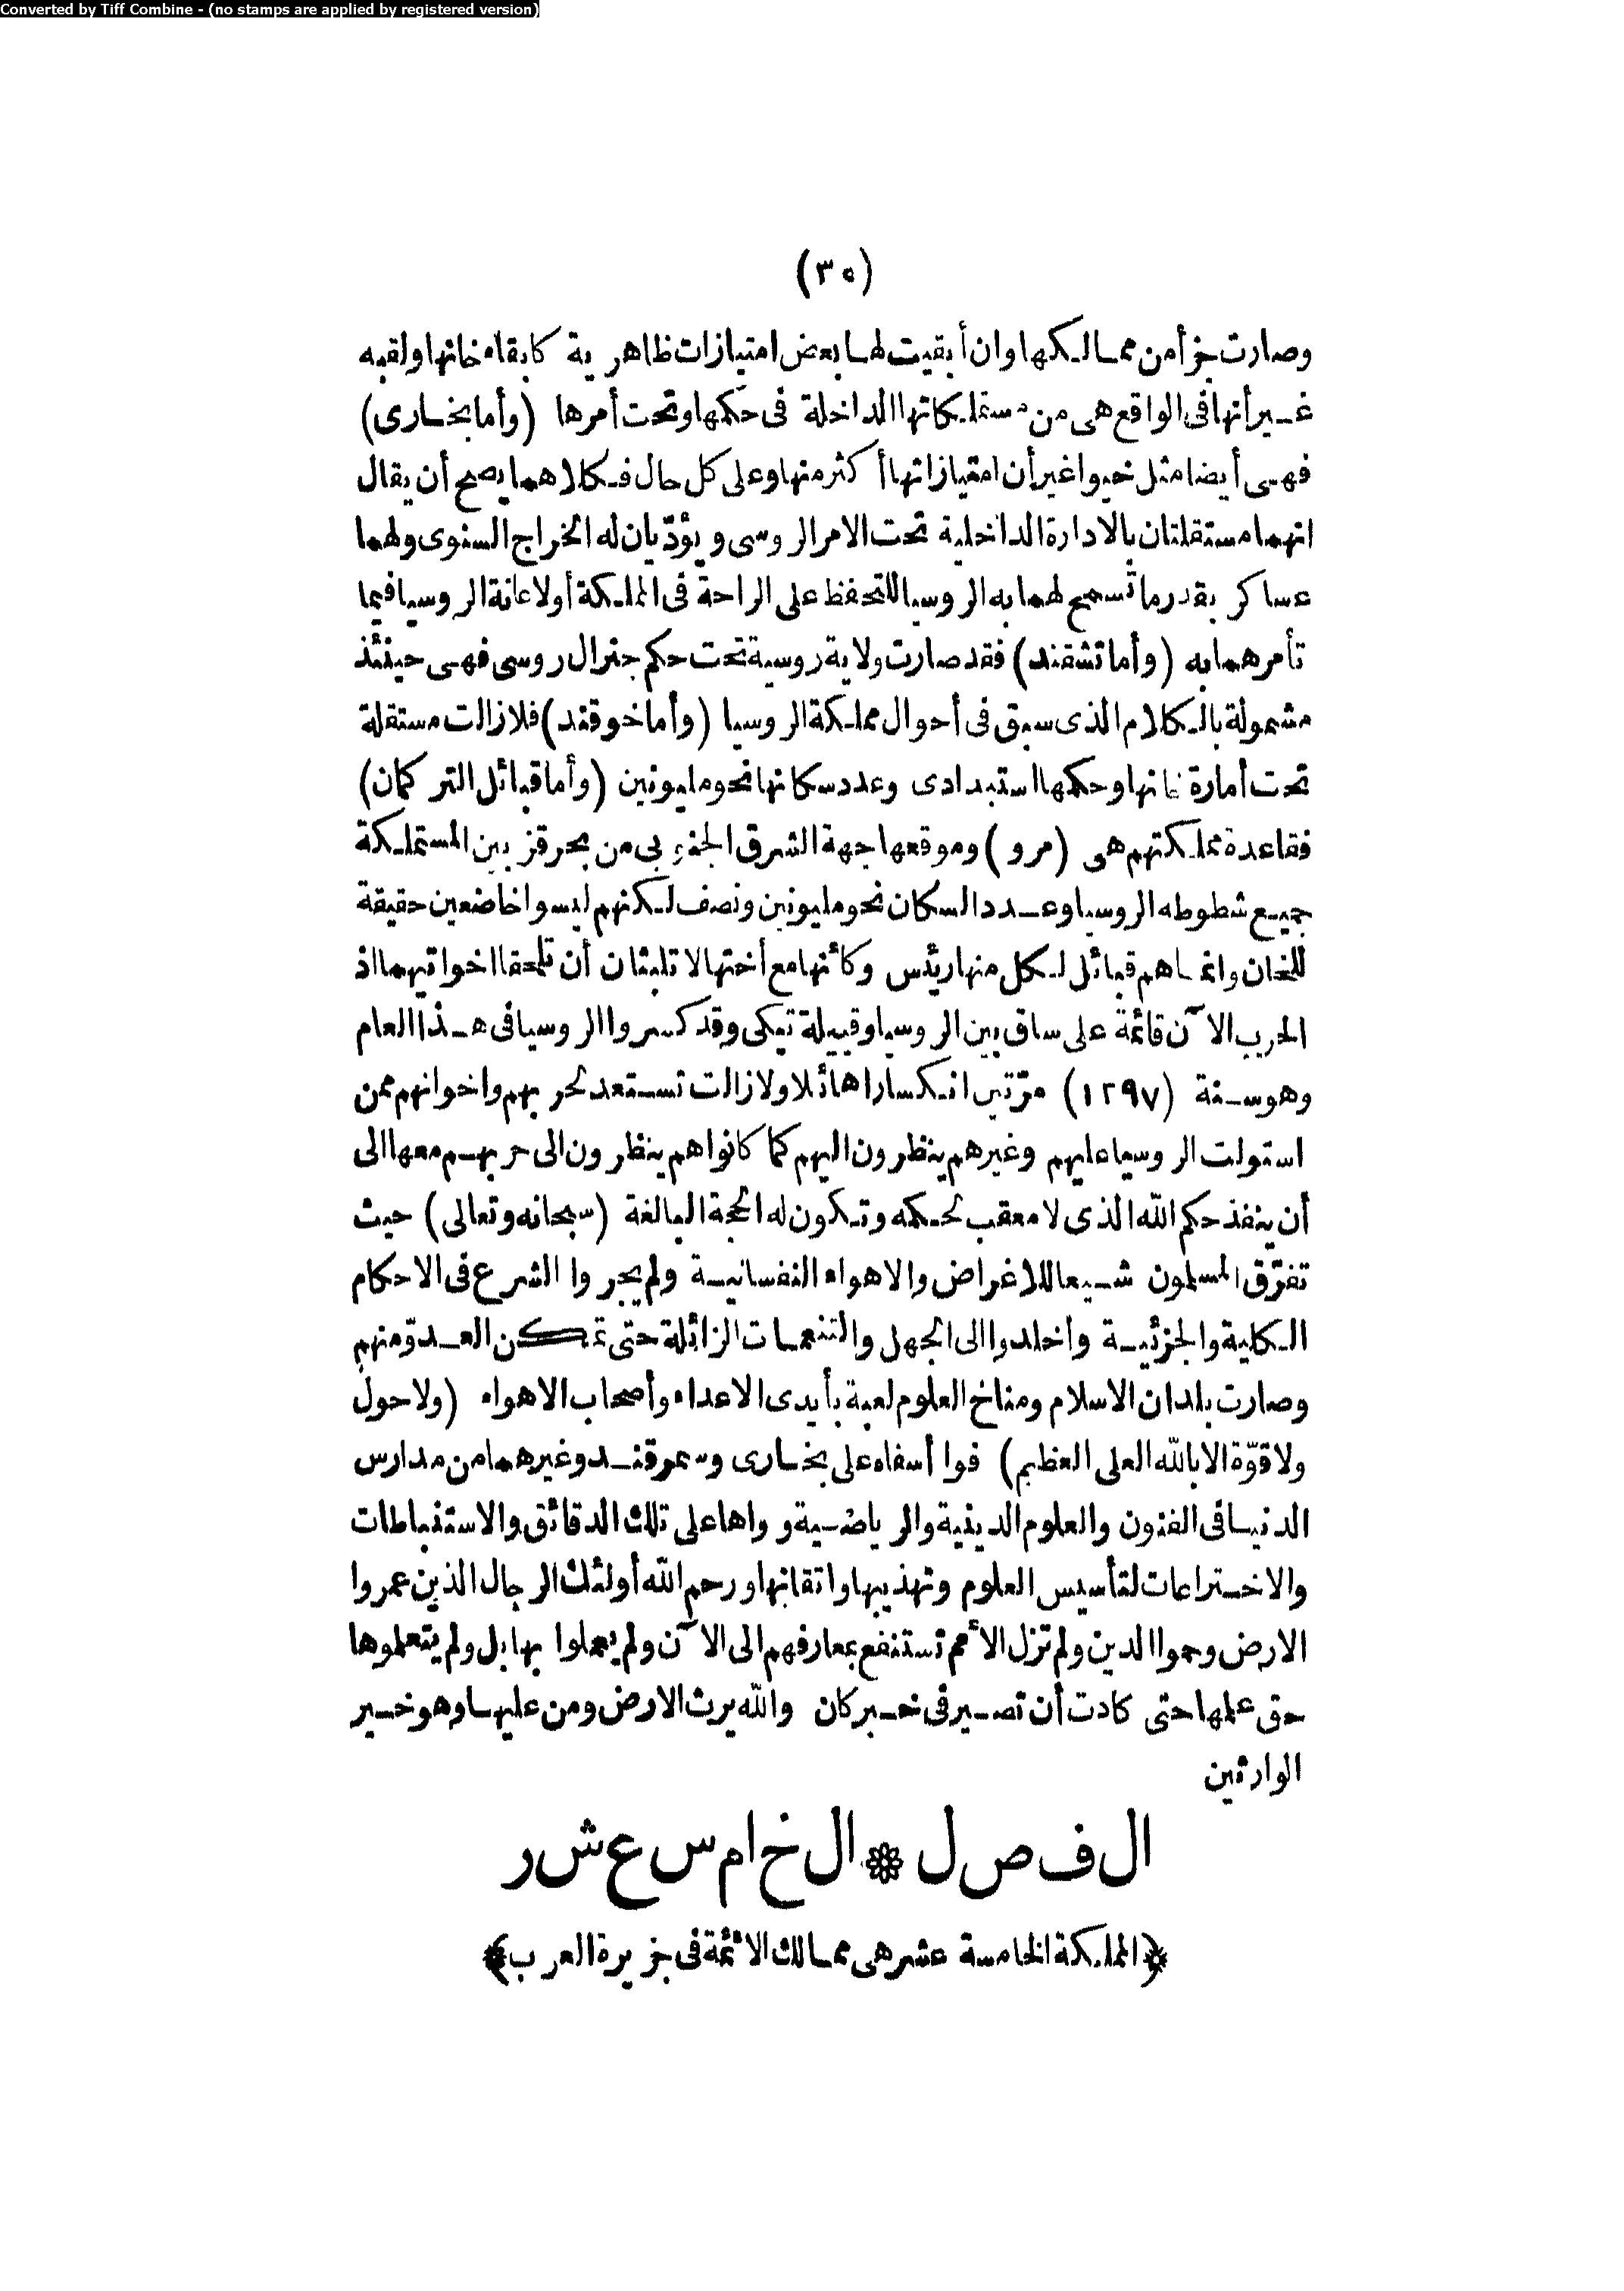 Converted by Tiff Combine - (no stamps are applied by registered version)
(٣٥)
وصارت جزأ من ممالكها وان أبقيت لها بعض امتيازات ظاهرية كابقاء خانها ولقبه
غير أنها فى الواقع هى من مستملكاتها الداخلة فى حكمها وتحت أمرها (وأما بخارى)
فهى أيضا مثل خيوا غير أن امتيازاتها أكثر منها وعلى كل حال فكلاهما يصح أن يقال
انهما مستقلتان بالادارة الداخلية تحت الامر الروسى ويؤدّيان له الخراج السنوى ولهما
عساكر بقدر ما تسمح لهما به الروسيا للتحفظ على الراحة فى المملكة أو لاعانة الروسيا فيما
تأمرهما به (وأما تشقند) فقد صارت ولاية روسية تحت حكم جنرال روسى فهى حينئذ
مشمولة بالكلام الذى سبق فى أحوال مملكة الروسيا (وأما خوقند) فلا زالت مستقلة
تحت أمارة خانها وحكمها استبدادى وعدد سكانها نحو مليونين (وأما قبائل التركمان)
فقاعدة مملكتهم هى (مرو) وموقعها جهة الشرق الجنوبى من بحر قزبين المستملكة
جميع شطوطه الروسيا وعدد السكان نحو مليونين ونصف لكنهم ليسوا خاضعين حقيقة
للخان وانما هم قبائل لكل منها رئيس وكأنها مع أختها لا تلبثان أن تلحقا اخواتيهما اذ
الحرب الآن قائمة على ساق بين الروسيا وقبيلة تيكى وقد كسروا الروسيا فى هذا العام
وهو سنة (١٢٩٧) مرّتين انكسارا هائلا ولا زالت تستعد لحربهم واخوانهم ممن
استولت الروسيا عليهم وغيرهم ينظرون اليهم كما كانوا هم ينظرون الى حربهم معها الى
أن ينفذ حكم الله الذى لا معقب لحكمه وتكون له الحجة البالغة (سبحانه وتعالى) حيث
تفرّق المسلمون شيعا للاغراض والاهواء النفسانية ولم يجروا الشرع فى الاحكام
الكلية والجزئية وأخلدوا الى الجهل والتنعمات الزائلة حتى تمكن العدوّ منهم
وصارت بلدان الاسلام ومناخ العلوم لعبة بأيدى الاعداء وأصحاب الاهواء (ولا حول
ولا قوّة الا بالله العلى العظيم) فوا أسفاه على بخارى وسمرقند وغيرهما من مدارس
الدنيا فى الفنون والعلوم الدينية والرياضية وواها على تلك الدقائق والاستنباطات
والاختراعات لتأسيس العلوم وتهذيبها واتقانها ورحم الله أولئك الرجال الذين عمروا
الارض وحموا الدين ولم تزل الأمم تستنفع بمعارفهم الى الآن ولم يعملوا بها بل ولم يتعلموها
حق علمها حتى كادت أن تصير فى خبر كان والله يرث الارض ومن عليها وهو خير
الوارثين
الفصل * الخامس عشر
﴿المملكة الخامسة عشر هى ممالك الائمة فى جزيرة العرب﴾